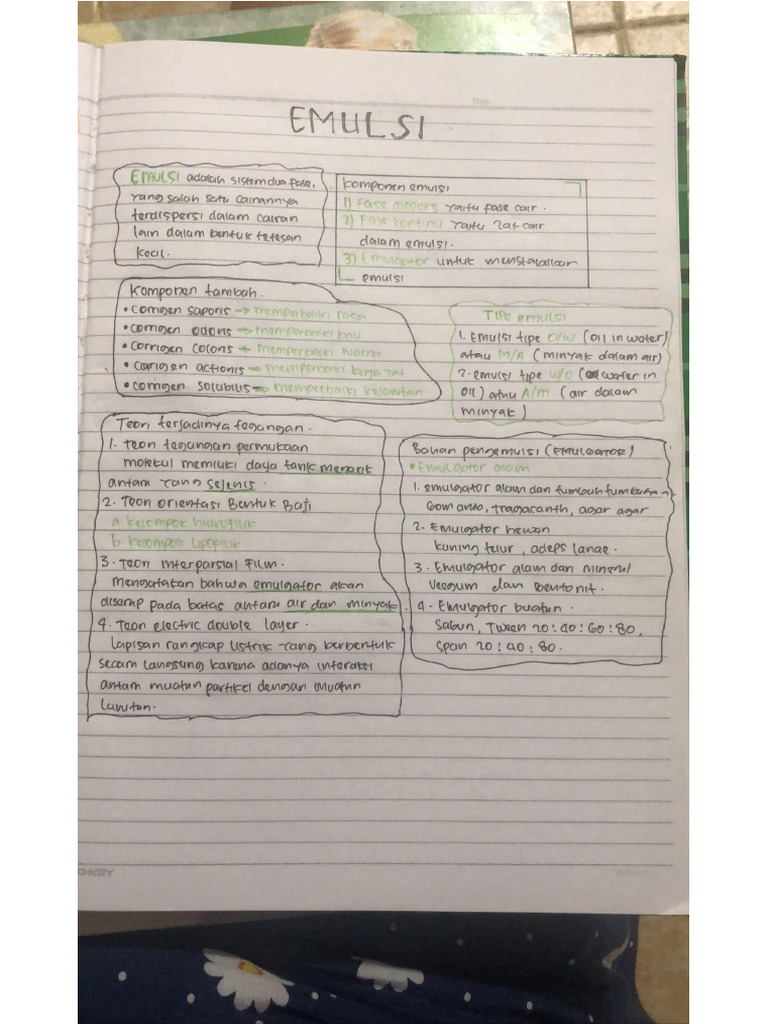 EMULSI
EMULSI adalah sistem dua fase,
yang salah satu cairannya
terdispersi dalam cairan
lain dalam bentuk tetesan
kecil.
Komponen emulsi
1) Fase dispers yaitu fase cair.
2) Fase kontinu yaitu zat cair
dalam emulsi.
3) Emulgator untuk menstabilkan
emulsi
Komponen tambah.
• corrigen saporis → memperbaiki rasa
• corrigen odoris → memperbaiki bau
• corrigen coloris → memperbaiki warna
• corrigen actionis → memperbaiki kerja zat
• corrigen solubilis → memperbaiki kelarutan
Tipe emulsi
1. Emulsi tipe O/W (oil in water)
atau M/A (minyak dalam air)
2. emulsi tipe W/O (water in
oil) atau A/m (air dalam
minyak)
Teori terjadinya tegangan.
1. Teori tegangan permukaan
molekul memiliki daya tarik menarik
antara yang sejenis.
2. Teori orientasi Bentuk Baji
a. kelompok hidrofilik
b. kelompok lipofilik
3. Teori interparsial Film.
mengatakan bahwa emulgator akan
diserap pada batas antara air dan minyak.
4. Teori electric double layer.
lapisan rangkap listrik yang berbentuk
secara langsung karena adanya interaksi
antara muatan partikel dengan muatan
larutan.
Bahan pengemulsi (EMULGATOR)
• Emulgator alam
1. emulgator alam dari tumbuh tumbuhan
Gom arab, tragacanth, agar agar
2. Emulgator hewan
kuning telur, adeps lanae.
3. Emulgator alam dari mineral
Veegum dan Bentonit.
4. Emulgator buatan.
Sabun, Tween 20:40:60:80,
Span 20:40:80.